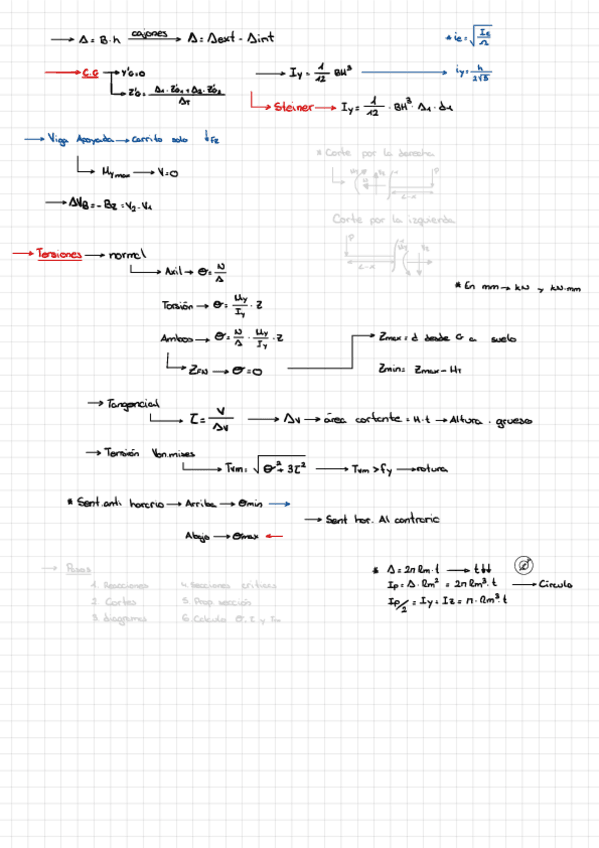 → A = B·h cajones → A = Aext - Aint
* ie = √(IE/A)
→ C.G → Y'G=0
→ Z'G = A1·Z'G1 + A2·Z'G2 / AT
→ Iy = 1/12 BH³ → iy = h/2√3
Steiner → Iy = 1/12 · BH³ · A1 · d1
→ Viga Apoyada → Carrito solo ↓Fz
→ My max → V=0
→ ΔVB = - Bz = V2 - V1
* Corte por la derecha
P
L-x
Corte por la izquierda
P
L-x
→ Tensiones → normal
→ Axil → σ = N/A
* En mm → kN y kN·mm
Torsión → σ = My/Iy · z
Ambos → σ = N/A · My/Iy · z
→ Zmax = d desde G a suelo
→ ZFN → σ = 0
Zmin = Zmax - HT
→ Tangencial
→ τ = V/Av → Av → área cortante = H·t → Altura · grueso
→ Tensión Von.mises
→ Tvm = √σ² + 3τ² → Tvm > fy → rotura
* Sent.anti horario → Arriba → σmin →
→ Sent hor. Al contrario
Abajo → σmax ←
→ Pasos
1. Reacciones
4. Secciones críticas
2. Cortes
5. Prop sección
3. diagramas
6. Calculo σ, τ y Tvm
* A = 2π Rm·t → t↓↓
Ip = A · Rm² = 2π Rm³·t → Circulo
Ip/2 = Iy = Iz = π · Rm³·t